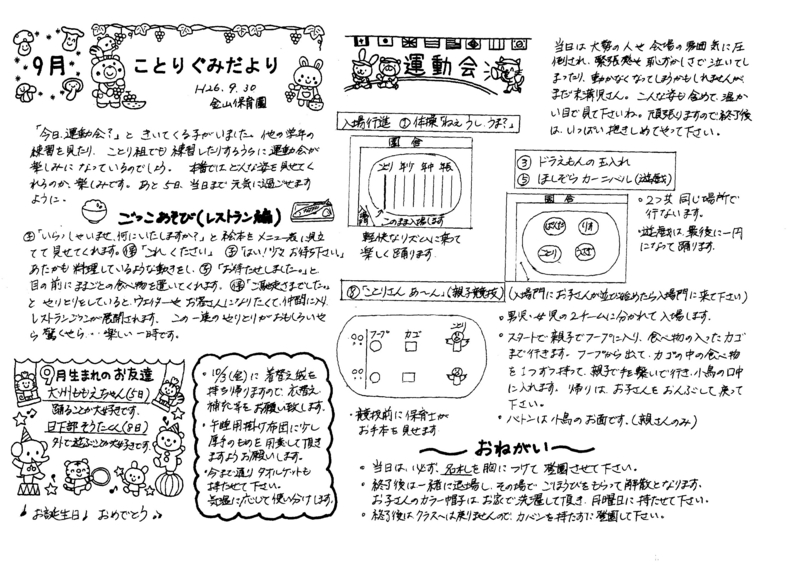 9月
ことりぐみだより
H26.9.30
金山保育園
「今日、運動会？」ときいてくる子がいました。他の学年の
練習を見たり、ことり組でも練習したりするうちに運動会が
楽しみになっているのでしょう。本番ではどんな姿を見せてく
れるのか、楽しみです。あと5日、当日まで元気に過ごせます
ように。
ごっこあそび(レストラン編)
「いらっしゃいませ、何にいたしますか？」と絵本をメニュー表に見立
てて見せてくれます。「これください」「はい！お待ち下さい」
あたかも料理しているような動きをし、「お待たせしました。」と
目の前にままごとの食べ物を置いてくれます。「ご馳走さまでした。」
とやりとりをしていると、ウエイターやお客さんになりたくて、仲間に入り、
レストランごっこが展開されます。この一連のやりとりがおもしろいや
ら驚くやら…楽しい一時です。
9月生まれのお友達
大州ももえちゃん(5日)
踊ることが大好きです。
日下部そうたくん(9日)
外で遊ぶことが大好きです。
お誕生日♪おめでとう
・10/3(金)に着替え袋を
持ち帰りますので、衣替え
補充等をお願い致します。
・午睡用掛け布団に少し
厚手のものを用意して頂き
ますようお願いします。
・今まで通りタオルケットも
持たせて下さい。
気温に応じて使い分けします。
運動会
入場行進 ① 体操「ねぇうし、うま？」
園舎
ことり 年少 年中 年長
このまま入場します
軽快なリズムに乗って
楽しく踊ります。
当日は大勢の人や会場の雰囲気に圧
倒され、緊張感や恥ずかしさで泣いてし
まったり、動かなくなってしまうかもしれませんが、
まだ未満児さん。こんな姿も含めて、温か
い目で見て下さいね。頑張りますので終了後
は、いっぱい抱きしめてやって下さい。
③ ドラえもんの玉入れ
⑤ ほしぞらカーニバル(遊戯)
園舎
ことり
・2つ共同じ場所で
行ないます。
・遊戯は、最後に一円
になって踊ります。
⑧「ことりさん あ〜ん」(親子競技)
(入場門にお子さんが並び始めたら入場門に来て下さい)
フープ カゴ ことり
・競技前に保育士が
お手本を見せます
・男児・女児の2チームに分かれて入場します。
・スタートで親子でフープに入り、食べ物の入ったカゴ
まで行きます。フープから出て、カゴの中の食べ物
を1つずつ持って、親子で手を繋いで行き、小鳥の口中
に入れます。帰りは、お子さんをおんぶして戻って
下さい。
・バトンは小鳥のお面です。(親さんのみ)
おねがい
・当日は、必ず、名札を胸につけて登園させて下さい。
・終了後は一緒に退場し、その場でごほうびをもらって解散となります。
お子さんのカラー帽子はお家で洗濯して頂き、月曜日に持たせて下さい。
・終了後はクラスへは戻りませんので、カバンを持たずに登園して下さい。